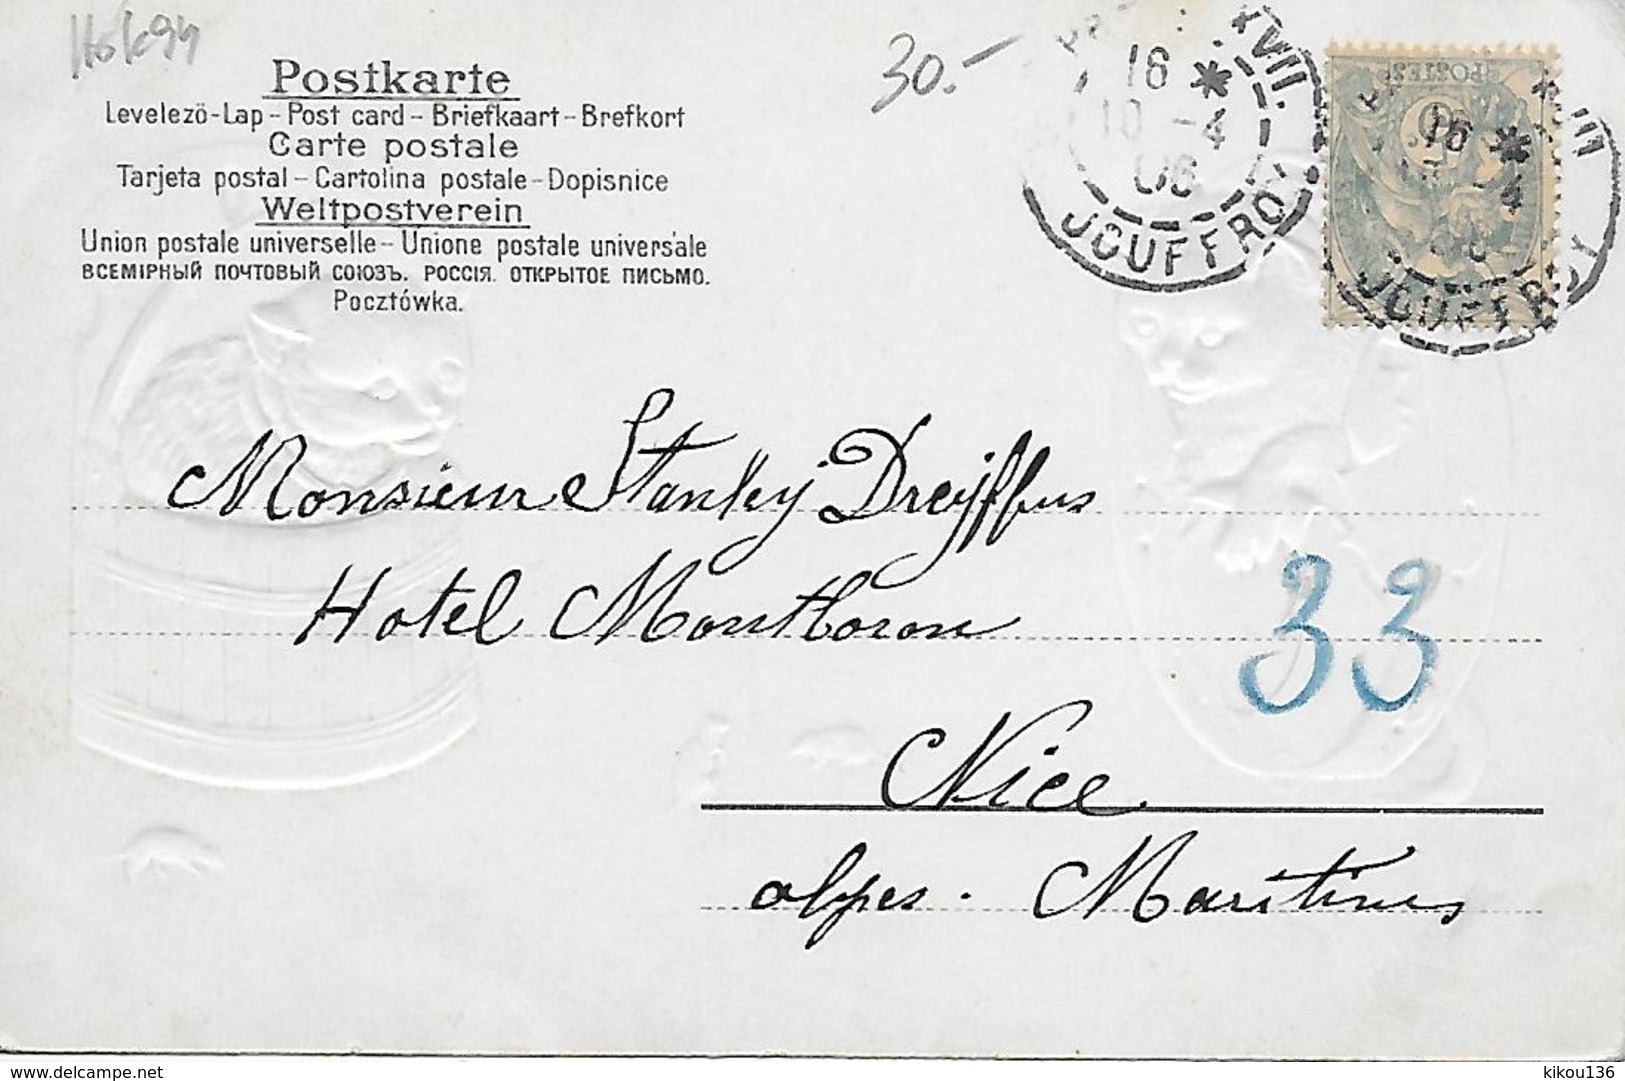 30.-
Postkarte
Levelezö-Lap - Post card - Briefkaart - Brefkort
Carte postale
Tarjeta postal - Cartolina postale - Dopisnice
Weltpostverein
Union postale universelle - Unione postale universale
ВСЕМІРНЫЙ ПОЧТОВЫЙ СОЮЗЪ. РОССІЯ. ОТКРЫТОЕ ПИСЬМО.
Pocztówka.
XVII.
16 *
10 -4
06
JOUFFROY
POSTES
16 *
-4
JOUFFROY
Monsieur Stanley Dreyffus
Hotel Montboron
33
Nice
alpes. Maritimes
delcampe.net
kikou136